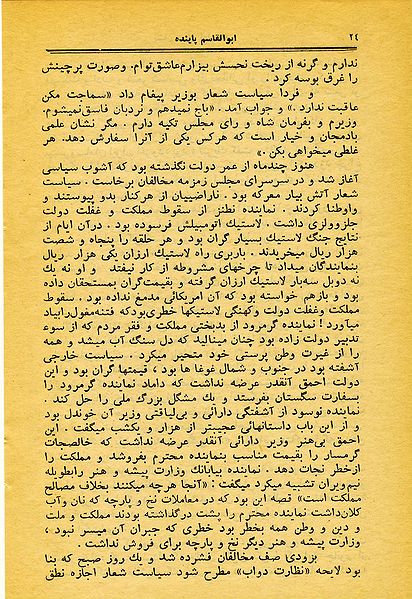 ۲٤ ابوالقاسم پاینده
ندارم و گرنه از ریخت نحسش بیزارم عاشق توام. وصورت پرچینش
را غرق بوسه کرد .
و فردا سیاست شعار بوزیر پیغام داد «سماجت مکن
عاقبت ندارد .» و جواب آمد . «باج نمیدهم و نردبان فاسق نمیشوم.
وزیرم و بفرمان شاه و رای مجلس تکیه دارم . مگر نشان علمی
بادمجان و خیار است که هرکس یکی از آنرا سفارش دهد. هر
غلطی میخواهی بکن .»
هنوز چندماه از عمر دولت نگذشته بود که آشوب سیاسی
آغاز شد و در سرسرای مجلس زمزمه مخالفان برخاست . سیاست
شعار آتش بیار معرکه بود . ناراضییان از هرکنار بدو پیوستند و
واوطنا کردند . نماینده نطنز از سقوط مملکت و غفلت دولت
جلزوولزی داشت . لاستیك اتومبیلش فرسوده بود . درآن ایام از
نتایج جنگ لاستیك بسیار گران بود و هر حلقه را پنجاه و شصت
هزار ریال میخریدند . باربری راه لاستیك ارزان یکی هزار ریال
بنمایندگان میداد تا چرخهای مشروطه از کار نیفتد و او نه یك
نه دوبل سه‌بار لاستیك ارزان گرفته و بقیمت‌گران بمستحقان داده
بود و بازهم خواسته بود که آن امریکائی مدمغ نداده بود . سقوط
مملکت وغفلت دولت وکهنگی لاستیکها خطری بودکه فتنه‌مغول‌رابیاد
میآورد ! نماینده گرمرود از بدبختی مملکت و فقر مردم که از سوء
تدبیر دولت زاده بود چنان مینالید که دل سنگ آب میشد و همه
را از غیرت وطن پرستی خود متحیر میکرد . سیاست خارجی
آشفته بود در جنوب و شمال غوغا ها بود ، قیمتها گران بود و این
دولت احمق آنقدر عرضه نداشت که داماد نماینده گرمرود را
بسفارت سگستان بفرستد و یك مشگل بزرگ ملی را حل کند .
نماینده نوسود از آشفتگی دارائی و بی‌لیاقتی وزیر آن خوندل بود
و از این باب داستانهائی عجیبتر از هزار و یکشب میگفت . این
احمق بی‌هنر وزیر دارائی آنقدر عرضه نداشت که خالصجات
گرمسار را بقیمت مناسب بنماینده محترم بفروشد و مملکت را
ازخطر نجات دهد. نماینده بیابانك وزارت پیشه و هنر رابطویله
نیم‌ویران تشبیه میکرد میگفت : «آنجا هرچه میکنند بخلاف مصالح
مملکت است» قصه این بود که در معاملات نخ و پارچه که نان وآب
کلان‌داشت نماینده محترم را پشت درگذاشته بودند مملکت و ملت
و دین و وطن همه بخطر بود خطری که جبران آن میسر نبود ،
وزارت پیشه و هنر دیگر نخ و پارچه برای فروش نداشت .
بزودی صف مخالفان فشرده شد و یك روز صبح که بنا
بود لایحه «نظارت دواب» مطرح شود سیاست شعار اجازه نطق